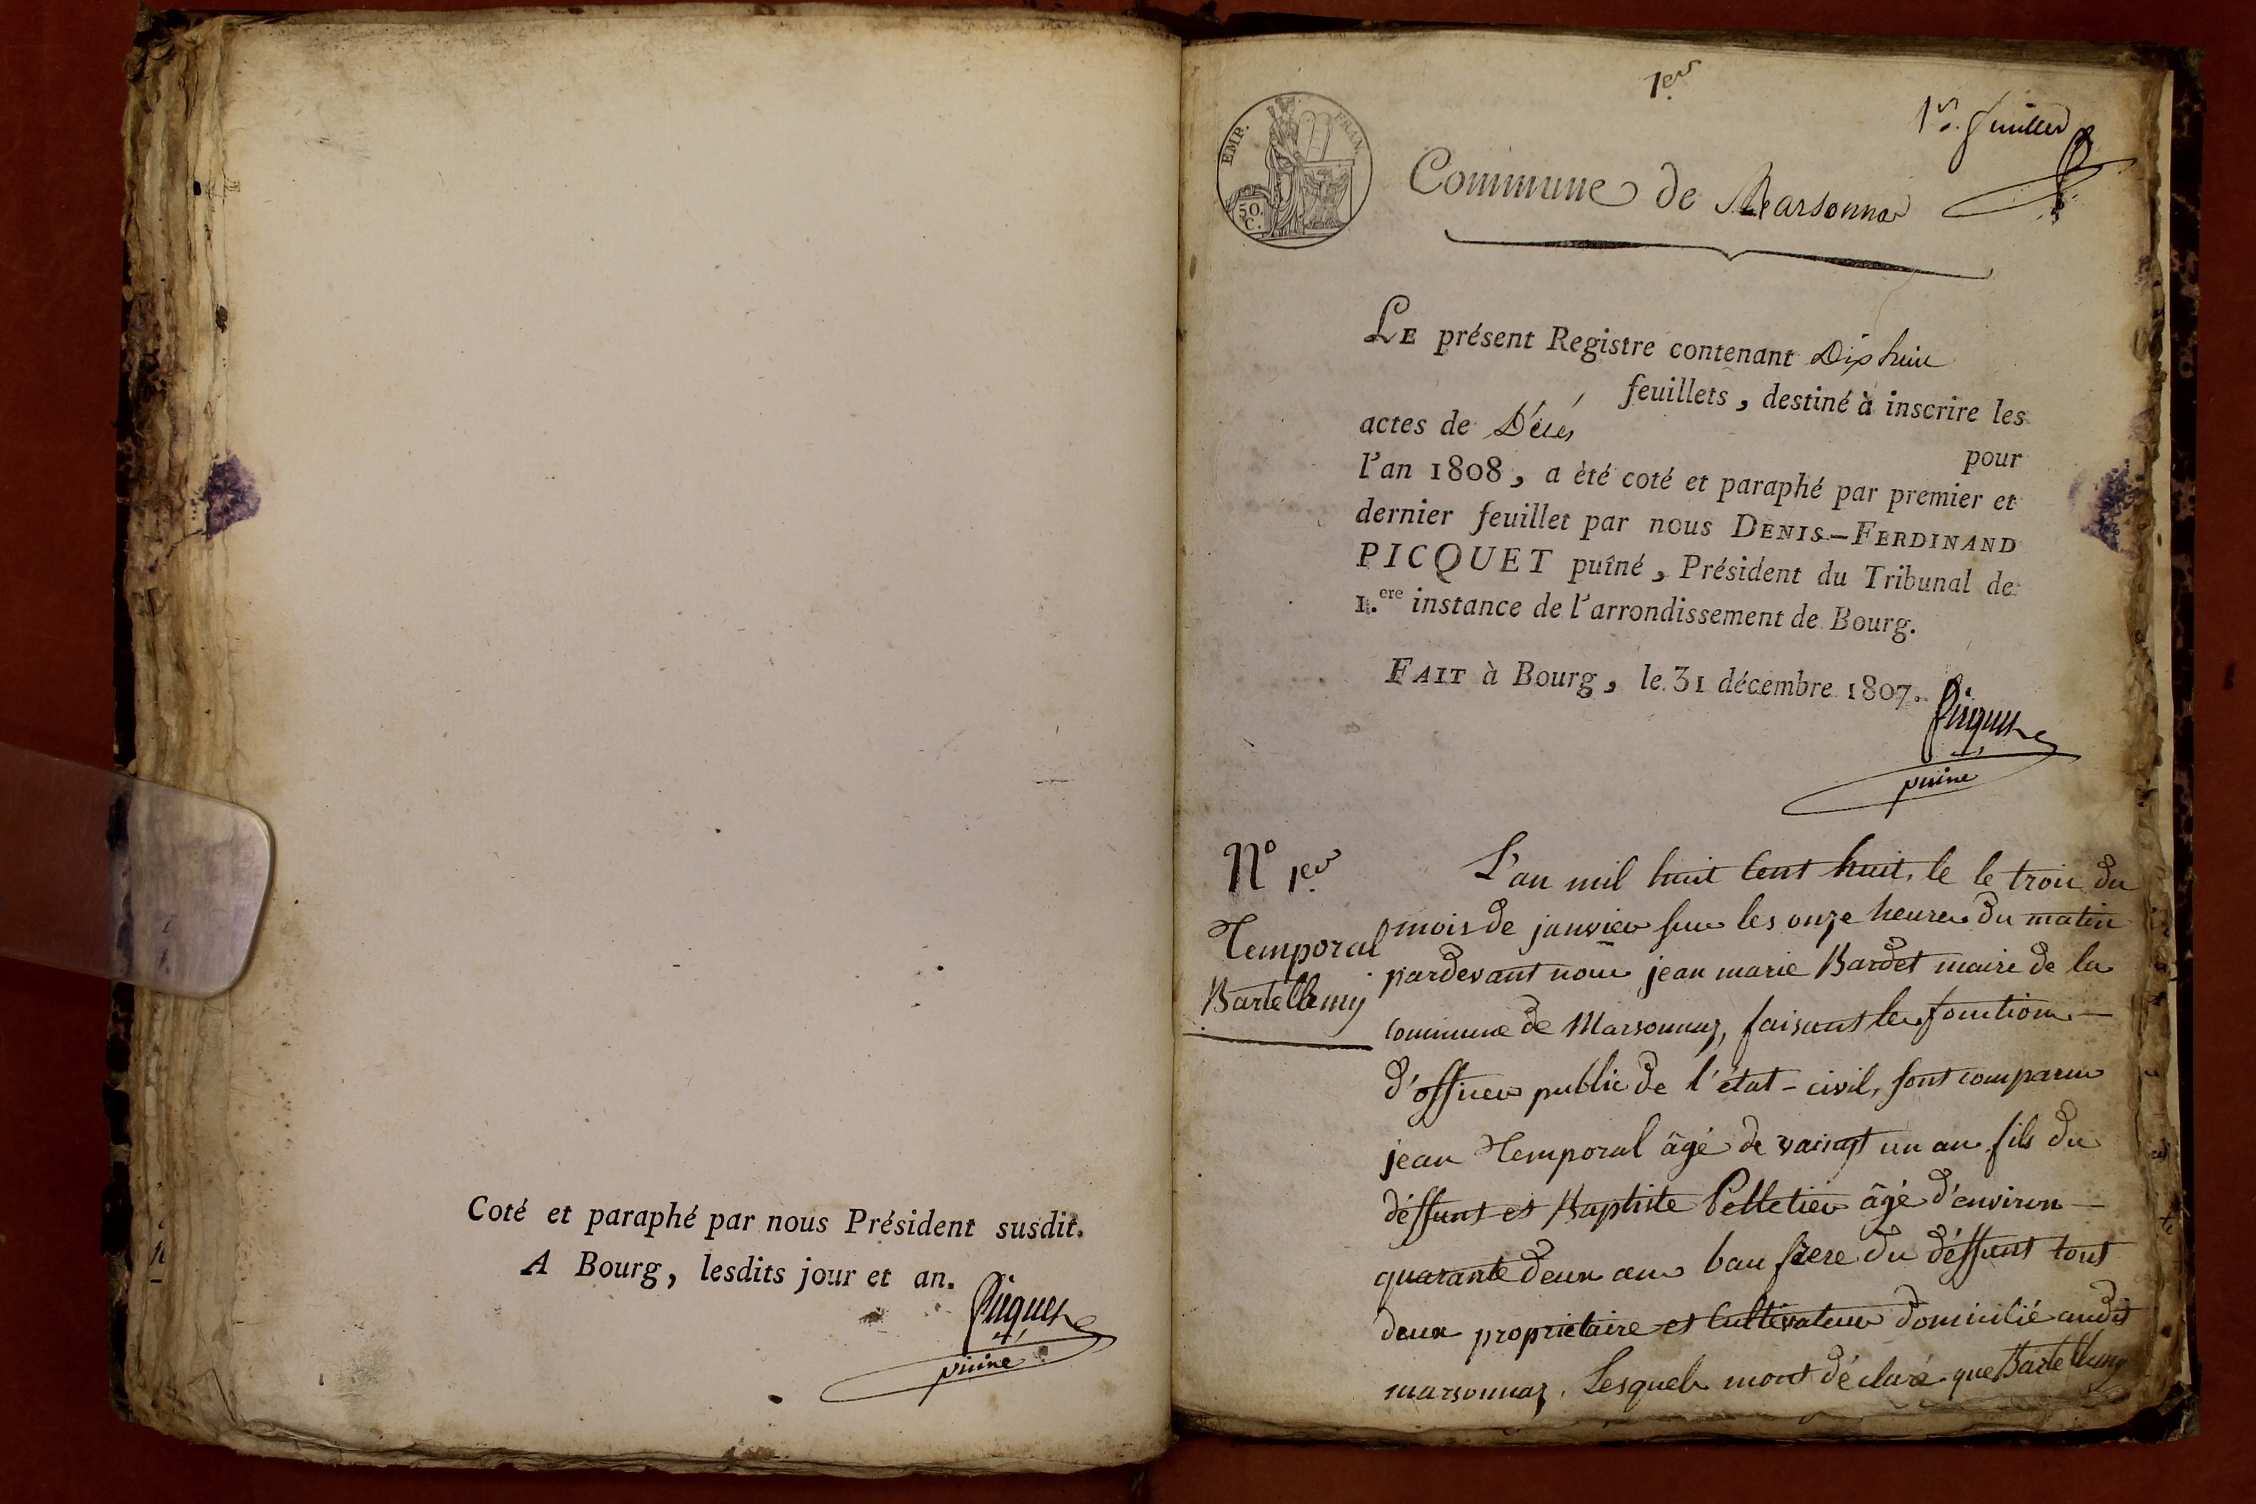 Coté et paraphé par nous Président susdit.
A Bourg, lesdits jour et an.
Picquet
puiné
1er
1er feuillet
EMP. FRAN.
50.
C.
Commune de Marsonna
LE présent Registre contenant Dix huit
feuillets, destiné à inscrire les
actes de Décès
pour
l'an 1808, a èté coté et paraphé par premier et
dernier feuillet par nous DENIS-FERDINAND
PICQUET puîné, Président du Tribunal de
1.ere instance de l'arrondissement de Bourg.
FAIT à Bourg, le 31 décembre 1807.
Picquet
puiné
N° 1er
Temporal
Bartellemy
L'an mil huit cent huit, le le trois du
mois de janvier sur les onze heures du matin
pardevant nous jean marie Bardet maire de la
commune de Marsonnaz, faisant les fonctions
d'officier public de l'état-civil, sont comparus
jean Temporal âgé de vaingt un an fils du
déffunt et Baptiste Pelletier âgé d'environ
quarante deux ans bau frere du déffunt tout
deux propriétaire et cultivateur domicilié audit
marsonnaz. Lesquels mont déclaré que Bartellemy